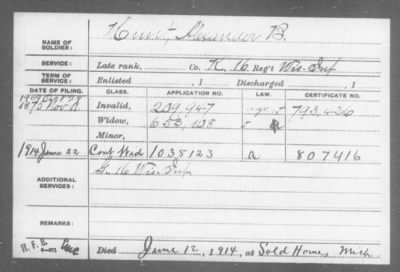 NAME OF SOLDIER: Hunt, Alexander B.
SERVICE: Late rank, Co. K, 16 Reg't Wis. Inf
TERM OF SERVICE: Enlisted , 1 Discharged , 1
DATE OF FILING. CLASS. APPLICATION NO. LAW. CERTIFICATE NO.
Invalid, 239,947 793,536
Widow, 652,108
Minor,
1914 June 22 Cont Wid 1035123 a 807416
ADDITIONAL SERVICES: G. 16 Wis. Inf
REMARKS:
Died June 12, 1914, at Sold Home, Mich